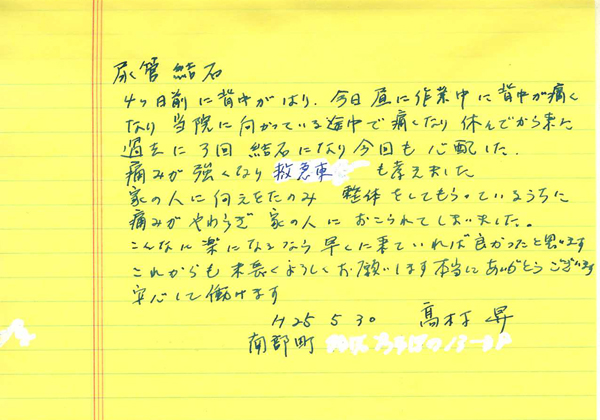 尿管結石
4ヶ日前に背中がはり、今日昼に作業中に背中が痛く
なり当院に向かっている途中で痛くなり休んでから来た
過去に3回結石になり今回も心配した.
痛みが強くなり救急車も考えました
家の人に向えをたのみ 整体をしてもらっているうちに
痛みがやわらぎ家の人におこられてしまいました。
こんなに楽になるなら早くに来ていれば良かったと思います
これからも末長くよろしくお願いします本当にありがとうございます
安心して働けます
H25 5 30 高村 昇
南部町